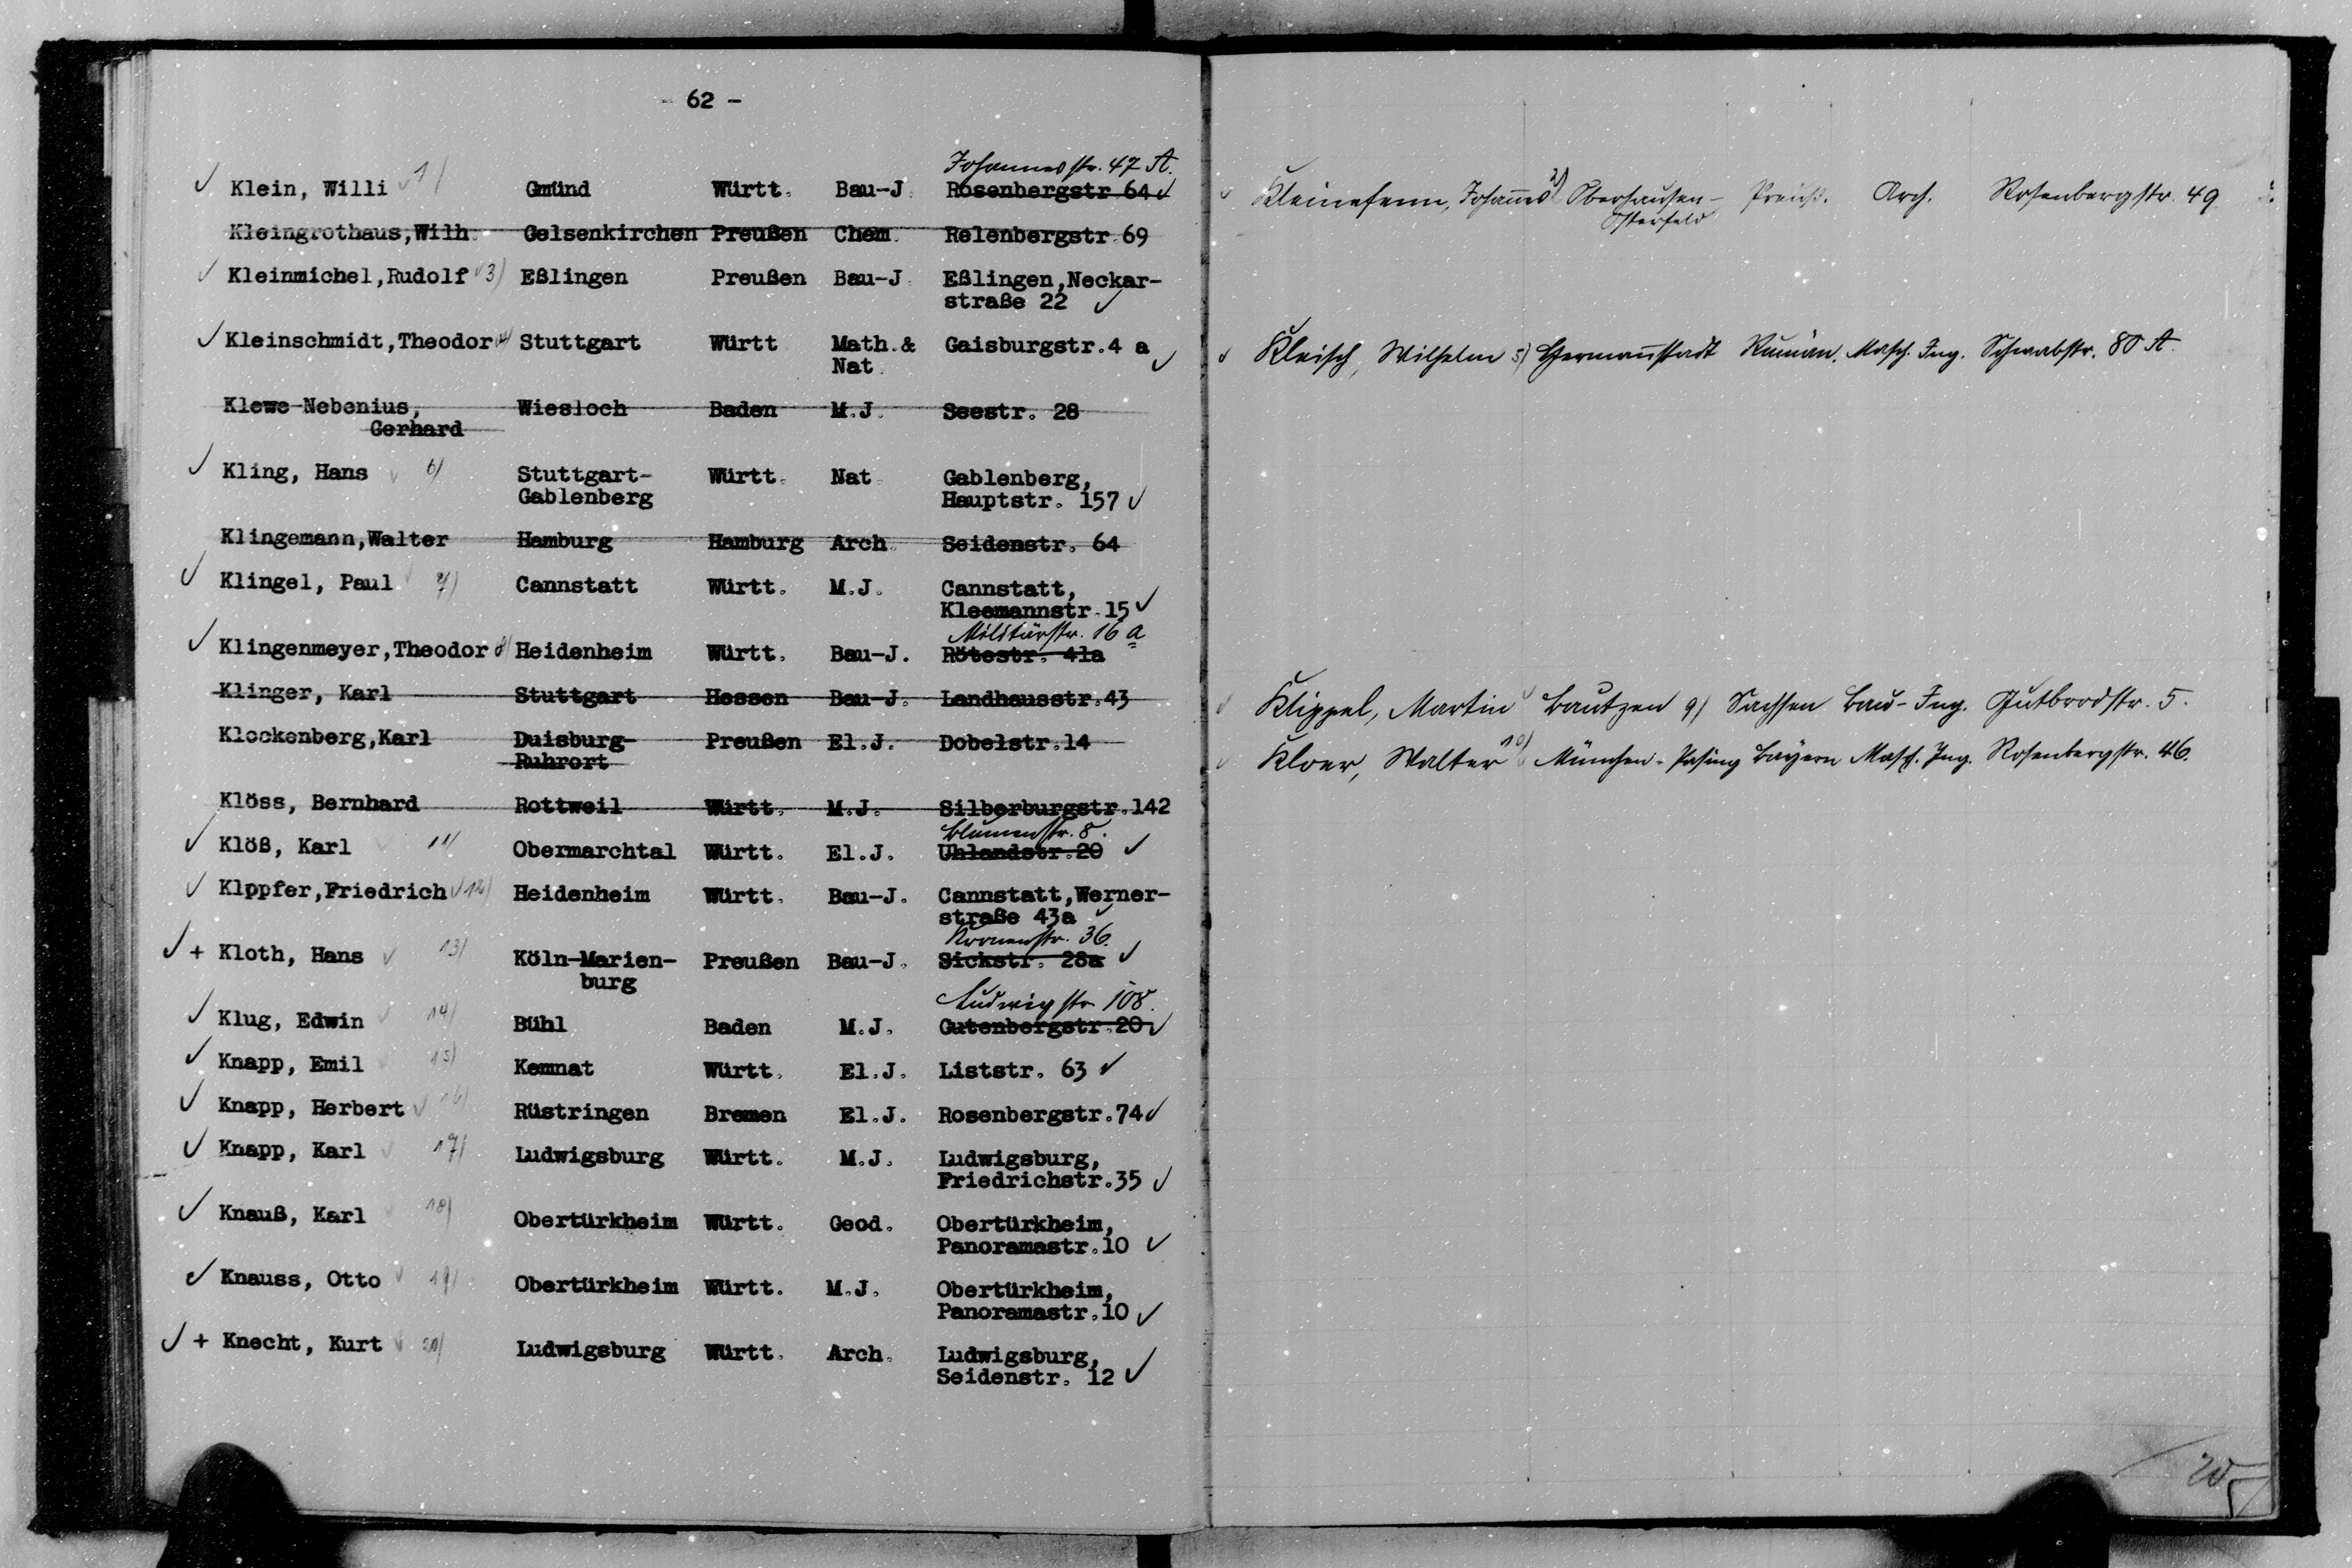 - 62 -
Johannesstr. 47 A.
Klein, Willi 1) Gmünd Württ. Bau-J. Rosenbergstr 64
Kleingrothaus,Wilh. Gelsenkirchen Preußen Chem. Relenbergstr.69
Kleinmichel,Rudolf 3) Eßlingen Preußen Bau-J. Eßlingen,Neckar-
straße 22
Kleinschmidt,Theodor 4) Stuttgart Württ Math.& Gaisburgstr.4 a
Nat.
Klewe-Nebenius, Wiesloch Baden M.J. Seestr. 28
Gerhard
Kling, Hans 6) Stuttgart- Württ. Nat. Gablenberg,
Gablenberg Hauptstr. 157
Klingemann,Walter Hamburg Hamburg Arch. Seidenstr. 64
Klingel, Paul 7) Cannstatt Württ. M.J. Cannstatt,
Kleemannstr.15
Militärstr. 16 a
Klingenmeyer,Theodor 8) Heidenheim Württ. Bau-J. Rötestr. 41a
Klinger, Karl Stuttgart Hessen Bau-J. Landhausstr.43
Klockenberg,Karl Duisburg- Preußen El.J. Dobelstr.14
Ruhrort
Klöss, Bernhard Rottweil Württ. M.J. Silberburgstr.142
Blumenstr. 8.
Klöß, Karl 11) Obermarchtal Württ. El.J. Uhlandstr.20
Klppfer,Friedrich 12) Heidenheim Württ. Bau-J. Cannstatt,Werner-
straße 43a
Kronenstr. 36.
+ Kloth, Hans 13) Köln-Marien- Preußen Bau-J. Sickstr. 28a
burg
Ludwigstr 108.
Klug, Edwin 14) Bühl Baden M.J. Gutenbergstr.20
Knapp, Emil 15) Kemnat Württ. El.J. Liststr. 63
Knapp, Herbert 16) Rüstringen Bremen El.J. Rosenbergstr.74
Knapp, Karl 17) Ludwigsburg Württ. M.J. Ludwigsburg,
Friedrichstr.35
Knauß, Karl 18) Obertürkheim Württ. Geod. Obertürkheim,
Panoramastr.10
Knauss, Otto 19) Obertürkheim Württ. M.J. Obertürkheim,
Panoramastr.10
+ Knecht, Kurt 20) Ludwigsburg Württ. Arch. Ludwigsburg,
Seidenstr. 12
Kleinefenn, Johannes 2) Oberhausen- Preuß. Arch. Rosenbergstr. 49
Osterfeld
Kleisch, Wilhelm 5) Hermannstadt Rumän. Masch. Ing. Schwabstr. 80 A.
Klippel, Martin Bautzen 9) Sachsen Bau-Ing. Gutbrodstr. 5.
Kloer, Walter 10) München-Pasing Bayern Masch. Ing. Rosenbergstr. 46.
20